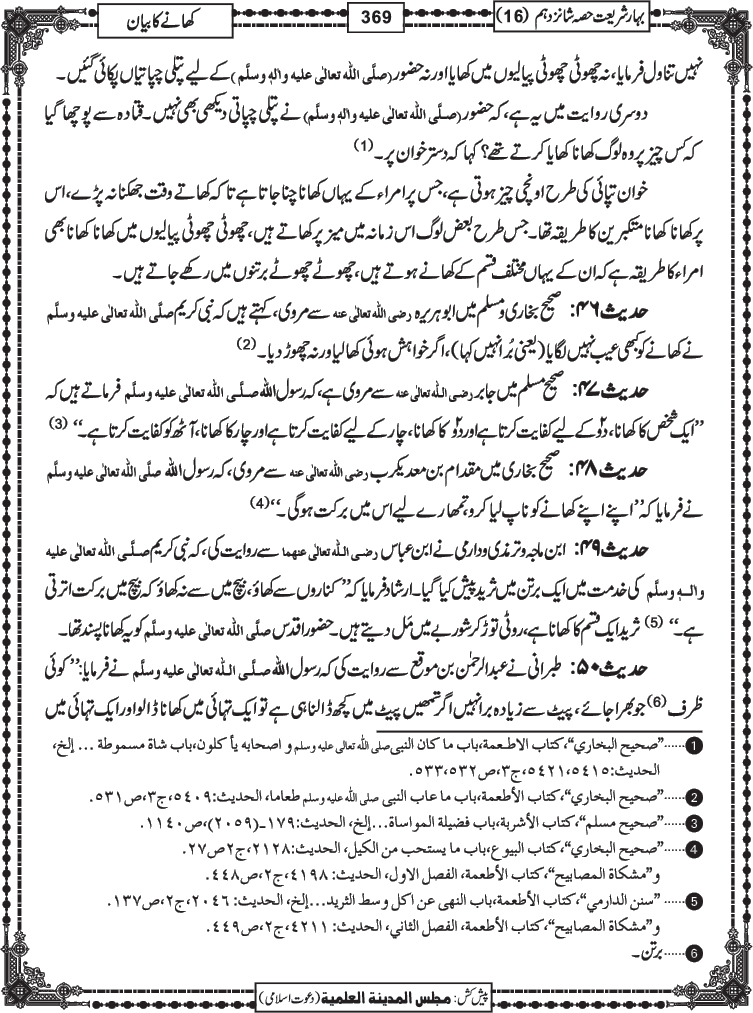 بہارِ شریعت حصہ شانزدہم (16)
369
کھانے کا بیان
نہیں تناول فرمایا، نہ چھوٹی چھوٹی پیالیوں میں کھایا اور نہ حضور (صلَّی اللہ تعالٰی علیہ والہٖ وسلَّم) کے لیے پتلی چپاتیاں پکائی گئیں۔
دوسری روایت میں یہ ہے، کہ حضور (صلَّی اللہ تعالٰی علیہ والہٖ وسلَّم) نے پتلی چپاتی دیکھی بھی نہیں۔ قتادہ سے پوچھا گیا
کہ کس چیز پر وہ لوگ کھانا کھایا کرتے تھے؟ کہا کہ دسترخوان پر۔ (1)
خوان تپائی کی طرح اونچی چیز ہوتی ہے، جس پر امراء کے یہاں کھانا چنا جاتا ہے تاکہ کھاتے وقت جھکنا نہ پڑے، اس
پر کھانا کھانا متکبرین کا طریقہ تھا۔ جس طرح بعض لوگ اس زمانہ میں میز پر کھاتے ہیں، چھوٹی چھوٹی پیالیوں میں کھانا کھانا بھی
امراء کا طریقہ ہے کہ ان کے یہاں مختلف قسم کے کھانے ہوتے ہیں، چھوٹے چھوٹے برتنوں میں رکھے جاتے ہیں۔
حدیث ۴۶: صحیح بخاری و مسلم میں ابوہریرہ رضی اللہ تعالٰی عنہ سے مروی، کہتے ہیں کہ نبی کریم صلَّی اللہ تعالٰی علیہ وسلَّم
نے کھانے کو کبھی عیب نہیں لگایا (یعنی بُرا نہیں کہا)، اگر خواہش ہوئی کھا لیا ورنہ چھوڑ دیا۔ (2)
حدیث ۴۷: صحیح مسلم میں جابر رضی اللہ تعالٰی عنہ سے مروی ہے، کہ رسول اللہ صلَّی اللہ تعالٰی علیہ وسلَّم فرماتے ہیں کہ
’’ایک شخص کا کھانا، دو کے لیے کفایت کرتا ہے اور دو کا کھانا، چار کے لیے کفایت کرتا ہے اور چار کا کھانا، آٹھ کو کفایت کرتا ہے۔‘‘ (3)
حدیث ۴۸: صحیح بخاری میں مقدام بن معدیکرب رضی اللہ تعالٰی عنہ سے مروی، کہ رسول اللہ صلَّی اللہ تعالٰی علیہ وسلَّم
نے فرمایا کہ ’’اپنے اپنے کھانے کو ناپ لیا کرو، تمھارے لیے اس میں برکت ہوگی۔‘‘ (4)
حدیث ۴۹: ابن ماجہ و ترمذی و دارمی نے ابن عباس رضی اللہ تعالٰی عنہما سے روایت کی، کہ نبی کریم صلَّی اللہ تعالٰی علیہ
والہٖ وسلَّم کی خدمت میں ایک برتن میں ثرید پیش کیا گیا۔ ارشاد فرمایا کہ ’’کناروں سے کھاؤ، بیچ میں سے نہ کھاؤ کہ بیچ میں برکت اترتی
ہے۔‘‘ (5) ثرید ایک قسم کا کھانا ہے، روٹی توڑ کر شوربے میں مَل دیتے ہیں۔ حضور اقدس صلَّی اللہ تعالٰی علیہ وسلَّم کو یہ کھانا پسند تھا۔
حدیث ۵۰: طبرانی نے عبدالرحمٰن بن موقع سے روایت کی کہ رسول اللہ صلَّی اللہ تعالٰی علیہ وسلَّم نے فرمایا: ’’کوئی
ظرف (6) جو بھرا جائے، پیٹ سے زیادہ برا نہیں اگر تمھیں پیٹ میں کچھ ڈالنا ہی ہے تو ایک تہائی میں کھانا ڈالو اور ایک تہائی میں
1 ......’’صحیح البخاري‘‘، کتاب الاطعمۃ، باب ما کان النبی صلَّی اللہ تعالٰی علیہ وسلم و اصحابہ یأکلون، باب شاۃ مسموطۃ ... إلخ،
الحدیث: ۵۴۱۵، ۵۴۲۱، ج۳، ص۵۳۲، ۵۳۳.
2 ......’’صحیح البخاري‘‘، کتاب الأطعمۃ، باب ما عاب النبی صلی اللہ علیہ وسلم طعاما، الحدیث: ۵۴۰۹، ج۳، ص۵۳۱.
3 ......’’صحیح مسلم‘‘، کتاب الأشربۃ، باب فضیلۃ المواساۃ...إلخ، الحدیث: ۱۷۹ـ(۲۰۵۹)، ص۱۱۴۰.
4 ......’’صحیح البخاري‘‘، کتاب البیوع، باب ما یستحب من الکیل، الحدیث: ۲۱۲۸، ج۲ ص۲۷.
و ’’مشکاۃ المصابیح‘‘، کتاب الأطعمۃ، الفصل الاول، الحدیث: ۴۱۹۸، ج۲، ص۴۴۸.
5 ......’’سنن الدارمي‘‘، کتاب الأطعمۃ، باب النھی عن اکل وسط الثرید...إلخ، الحدیث: ۲۰۴۶، ج۲، ص۱۳۷.
و ’’مشکاۃ المصابیح‘‘، کتاب الأطعمۃ، الفصل الثاني، الحدیث: ۴۲۱۱، ج۲، ص۴۴۹.
6 ......برتن۔
پیش کش: مجلس المدینۃ العلمیۃ (دعوتِ اسلامی)